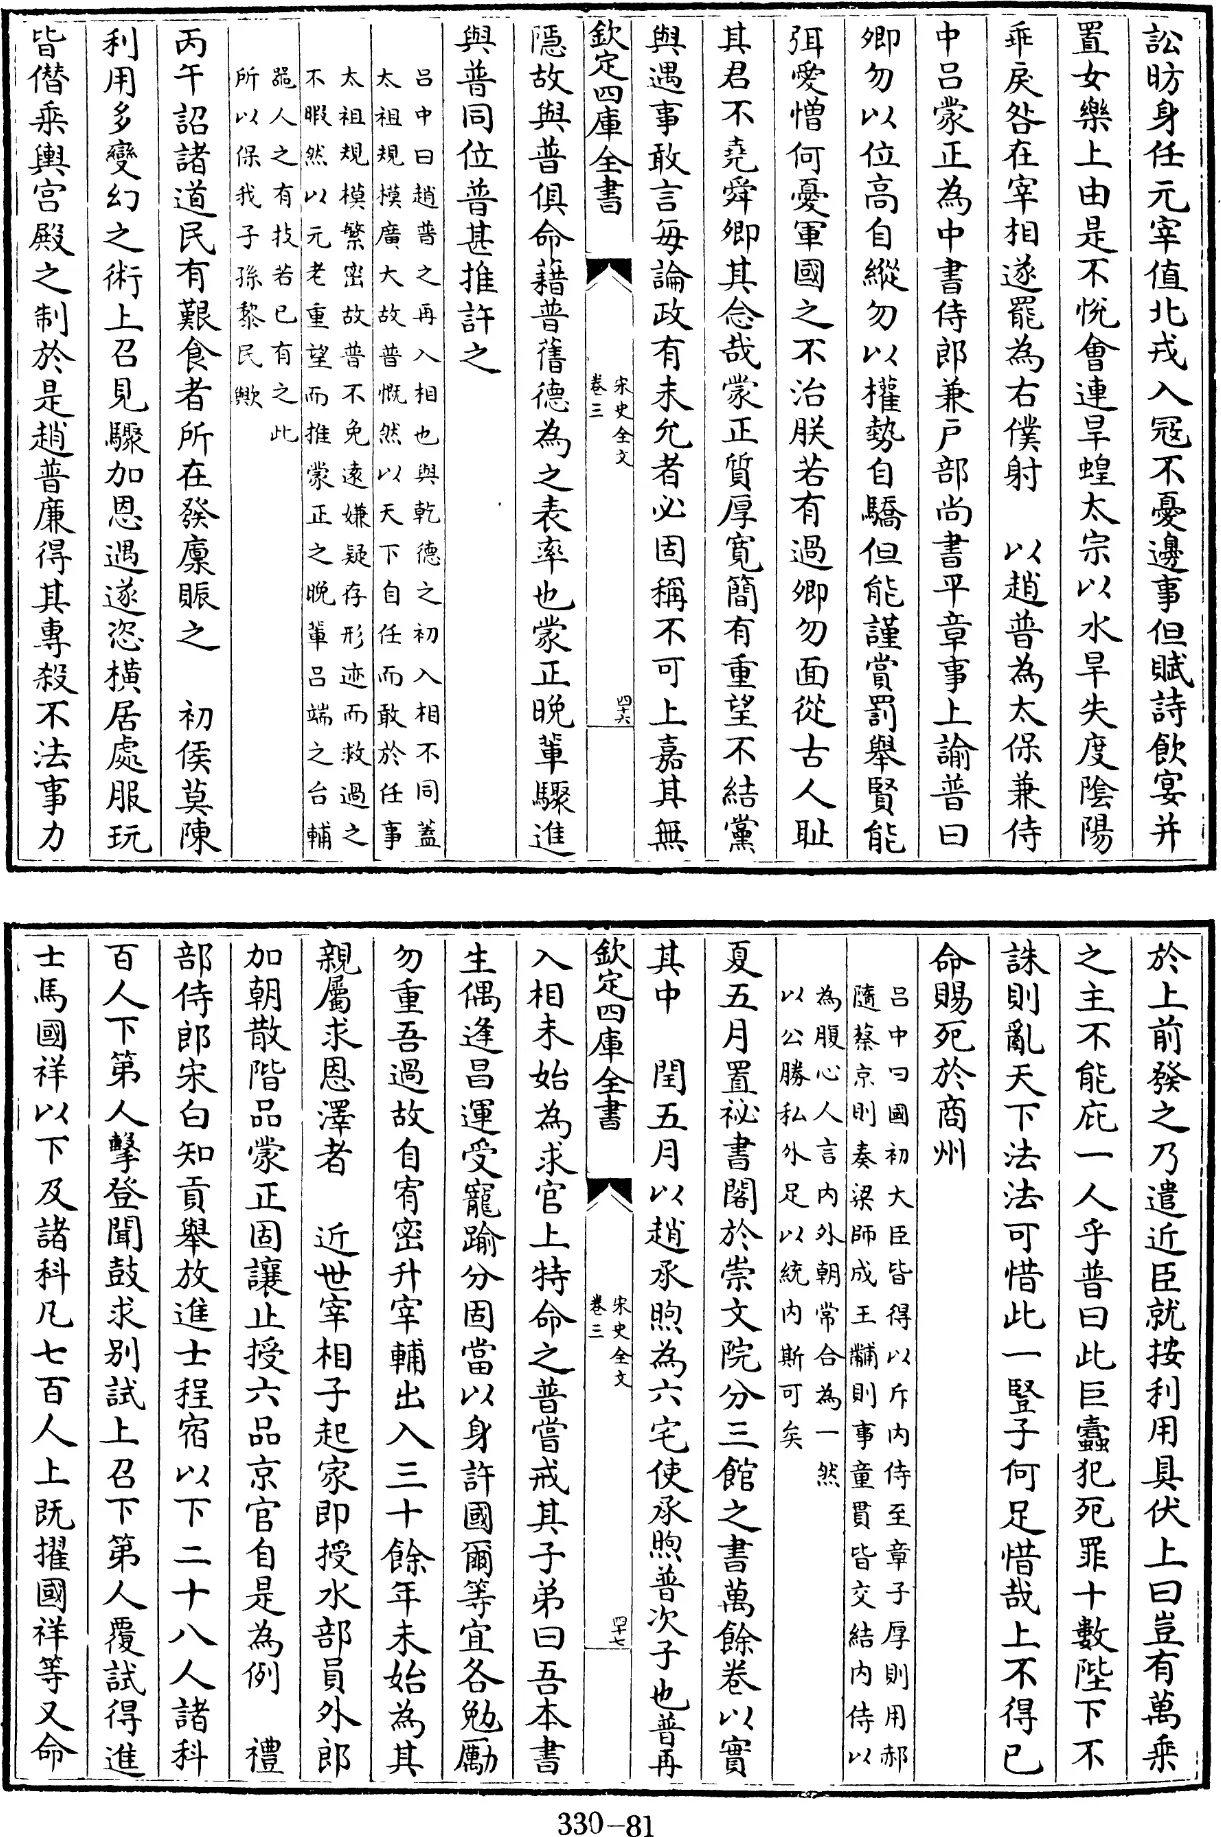 訟昉身任元宰值北戎入冦不憂邊事但賦詩飲宴并
置女樂上由是不悅會連旱蝗太宗以水旱失度陰陽
乖戾咎在宰相遂罷為右僕射　以趙普為太保兼侍
中呂蒙正為中書侍郎兼戸部尚書平章事上諭普曰
卿勿以位髙自縱勿以權勢自驕但能謹賞罰舉賢能
弭愛憎何憂軍國之不治朕若有過卿勿面從古人耻
其君不堯舜卿其念哉蒙正質厚寛簡有重望不結黨
與遇事敢言每論政有未允者必固稱不可上嘉其無
欽定四庫全書
宋史全文
卷三
四十六
隱故與普俱命藉普舊德為之表率也蒙正晚軰驟進
與普同位普甚推許之
呂中曰趙普之再入相也與乾德之初入相不同蓋
太祖規模廣大故普慨然以天下自任而敢於任事
太祖規模繁密故普不免遠嫌疑存形迹而救過之
不暇然以元老重望而推蒙正之晚軰呂端之台輔
噐人之有技若已有之此
所以保我子孫黎民歟
丙午詔諸道民有艱食者所在發廩賑之　初侯莫陳
利用多變幻之術上召見驟加恩遇遂恣横居處服玩
皆僭乘輿宫殿之制於是趙普廉得其專殺不法事力
於上前發之乃遣近臣就按利用具伏上曰豈有萬乘
之主不能庇一人乎普曰此巨蠹犯死罪十數陛下不
誅則亂天下法法可惜此一豎子何足惜哉上不得已
命賜死於商州
呂中曰國初大臣皆得以斥内侍至章子厚則用郝
隨蔡京則奏梁師成王黼則事童貫皆交結内侍以
為腹心人言内外朝常合為一然
以公勝私外足以統内斯可矣
夏五月置祕書閣於崇文院分三館之書萬餘卷以實
其中　閏五月以趙承煦為六宅使承煦普次子也普再
欽定四庫全書
宋史全文
卷三
四十七
入相未始為求官上特命之普嘗戒其子弟曰吾本書
生偶逢昌運受寵踰分固當以身許國爾等宜各勉勵
勿重吾過故自宥密升宰輔出入三十餘年未始為其
親屬求恩澤者　近世宰相子起家即授水部員外郎
加朝散階品蒙正固讓止授六品京官自是為例　禮
部侍郎宋白知貢舉放進士程宿以下二十八人諸科
百人下第人擊登聞鼓求别試上召下第人覆試得進
士馬國祥以下及諸科凡七百人上既擢國祥等又命
330-81